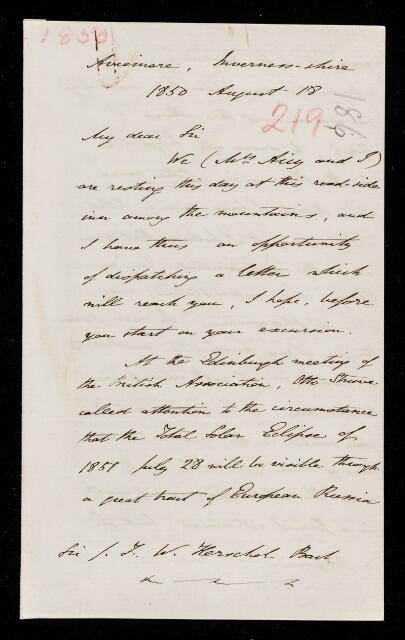 1850
Aviemore, Inverness-shire
1850 August 18
219
186
My dear Sir
We (Mrs Airy and I)
are resting this day at this road-side
inn among the mountains, and
I have thus an opportunity
of dispatching a letter which
will reach you, I hope, before
you start on your excursion.
At the Edinburgh meeting of
the British Association, Otto Struve
called attention to the circumstance
that the Total Solar Eclipse of
1851 July 28 will be visible through
a great tract of European Russia
Sir J. F. W. Herschel Bart